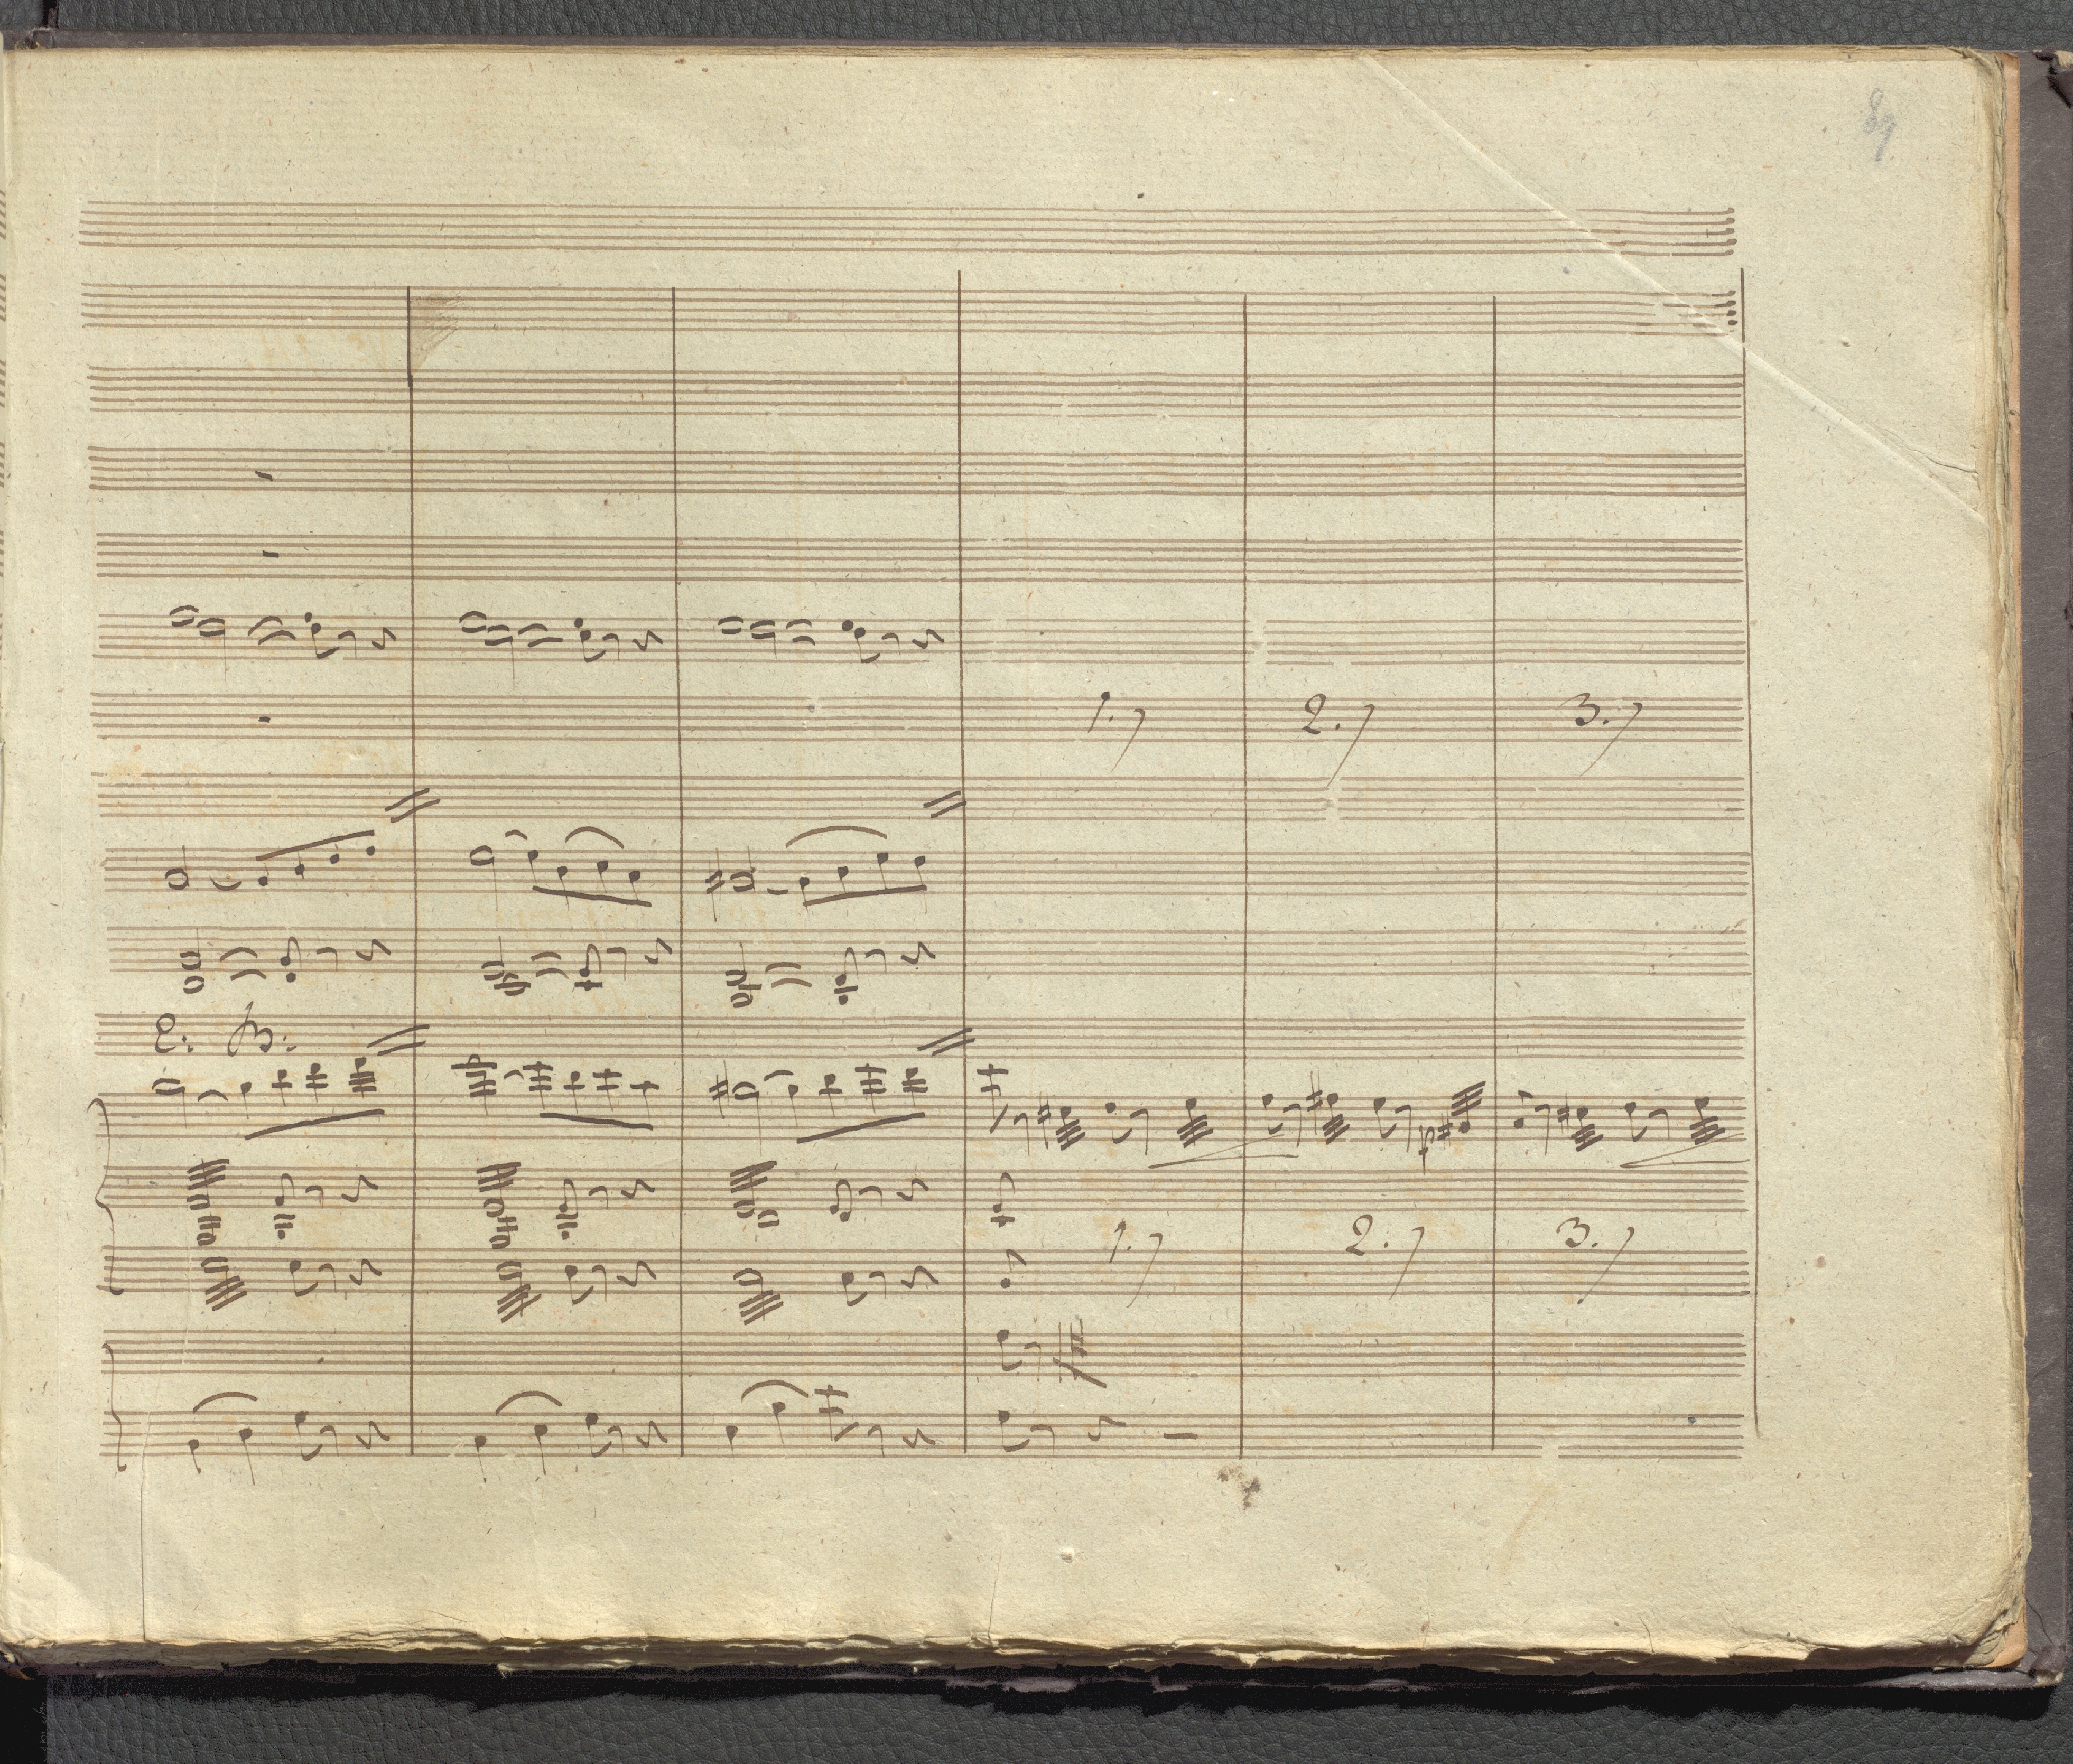 1.)
2.)
3.)
C. B.
1.)
2.)
3.)